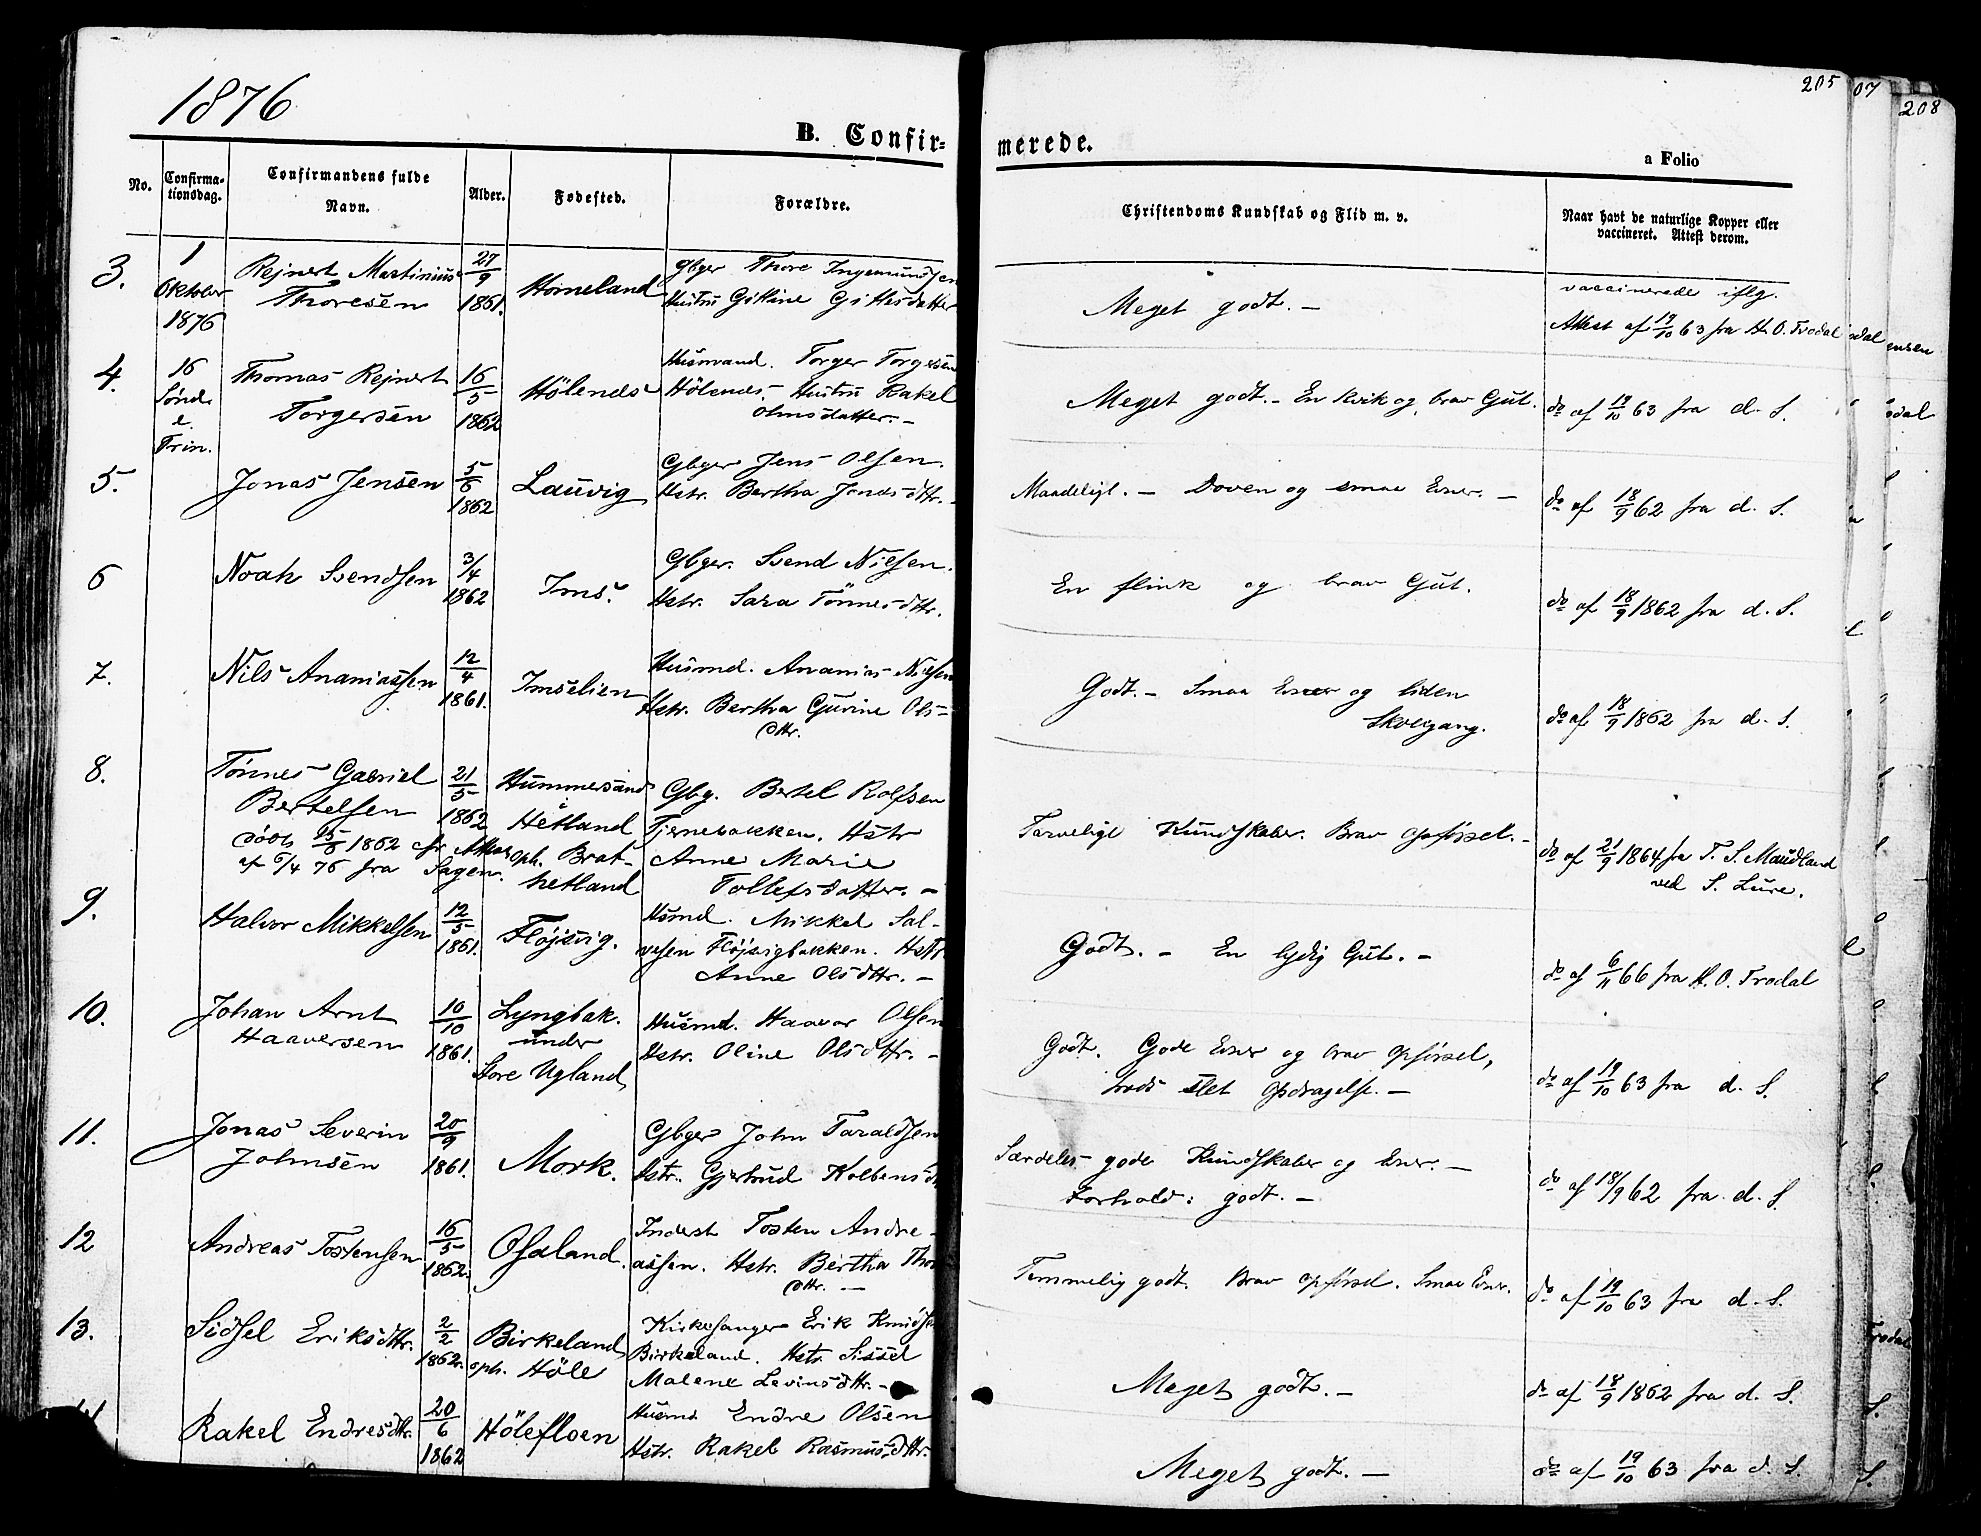 1876
B. Confir-
merede.
205
07
208
a Folio
No.
Confirma-
tionsdag.
Confirmandens fulde
Navn.
Alder.
Fødested.
Forældre.
Christendoms Kundskab og Flid m. v.
Naar havt de naturlige Kopper eller
vaccineret. Attest derom.
3.
1
Oktober
1876
16
Sønd.
e.
Trin.
Rejnert Martinius
Thoresen
27/9
1861.
Homeland
Gbger Thore Ingemundsen
Hustru Gitline Gittlesdatter
Meget godt. —
vaccinerede iflg.
Attest af 19/10 63 fra H. O. Frodal
4.
Thomas Rejnert
Torgersen
16/5
1862
Hölends
Husmand. Torger Torgersen
Hölends. Hustru Rakel
Olmsdatter. —
Meget godt. — En kvik og brav Gut.
do af 19/10 63 fra d. S.
5.
Jonas Jensen
5/6
1862
Lauvig
Gbger Jens Olsen.
Hstr. Bertha Jonasdttr. —
Maadeligt. — Doven og smaa Evner. —
do af 18/9 62 fra d. S.
6
Noah Svendsen
3/4
1862
Ims.
Gbger. Svend Nielsen.
Hstr. Sara Tönnesdttr.
En flink og brav Gut.
do af 18/9 1862 fra d. S.
7.
Nils Ananiassen
12/4
1861.
Imselien
Husmd. Ananias Nielsen
Hstr. Bertha Gurine Ols-
dttr.
Godt. — Smaa Evner og liden
Skolegang.
do af 18/9 1862 fra d. S.
8.
Tönnes Gabriel
Bertelsen
21/5
1862
døbt 25/5 1862 cfr Attest
af 6/4 76 fra Sagen.
Hummersand
Hetland
oph. Brat-
hetland
Gbg. Bertel Rolfsen
Tjernebakken. Hstr
Anne Marie
Tollefsdatter. —
Tarvelige Kundskaber. Brav Opførsel. —
do af 21/9 1864 fra T. S. Maudland
ved S. Lure.
9.
Halvor Mikkelsen
12/5
1861.
Fløjsvig.
Husmd. Mikkel Sal-
vesen Fløjsvigbakken. Hstr
Anne Olsdttr. —
Godt. — En lydig Gut. —
do af 6/11 66 fra H. O. Frodal
10.
Johan Arnt
Haaversen
10/10
1861.
Lyngbak.
under
Store Ugland
Husmd. Haavor Olsen
Hstr. Oline Olsdttr. —
Godt. Gode Evner og brav Opførsel,
trods slet Opdragelse. —
do af 19/10 63 fra d. S.
11.
Jonas Severin
Johnsen
20/9
1861.
Mork.
Gbger John Taraldsen
Hstr. Gjertrud Kolbensd
Særdeles gode Kundskaber og Evner. —
Forhold: godt. —
do af 18/9 62 fra d. S
12
Andreas Tostensen
16/5
1862.
Osaland.
Inderst Tosten Andre-
assen. Hstr. Bertha Thor
dttr. —
Temmelig godt. Brav Opførsel. Smaa Evner.
do af 19/10 63 fra d. S.
13.
Sidsel Eriksdttr.
2/2
1862.
Birkeland
oph. Höle
Kirkesanger Erik Knudse
Birkeland. Hstr. Sissel
Malene Levinsdttr. —
Meget godt. —
do af 18/9 1862 fra d. S.
Rakel Endresdttr.
20/6
1862
Hölefloen
Husmd Endre Olsen
Hstr. Rakel Rasmusdttr.
Meget godt. —
do af 19/10 63 fra d. S.